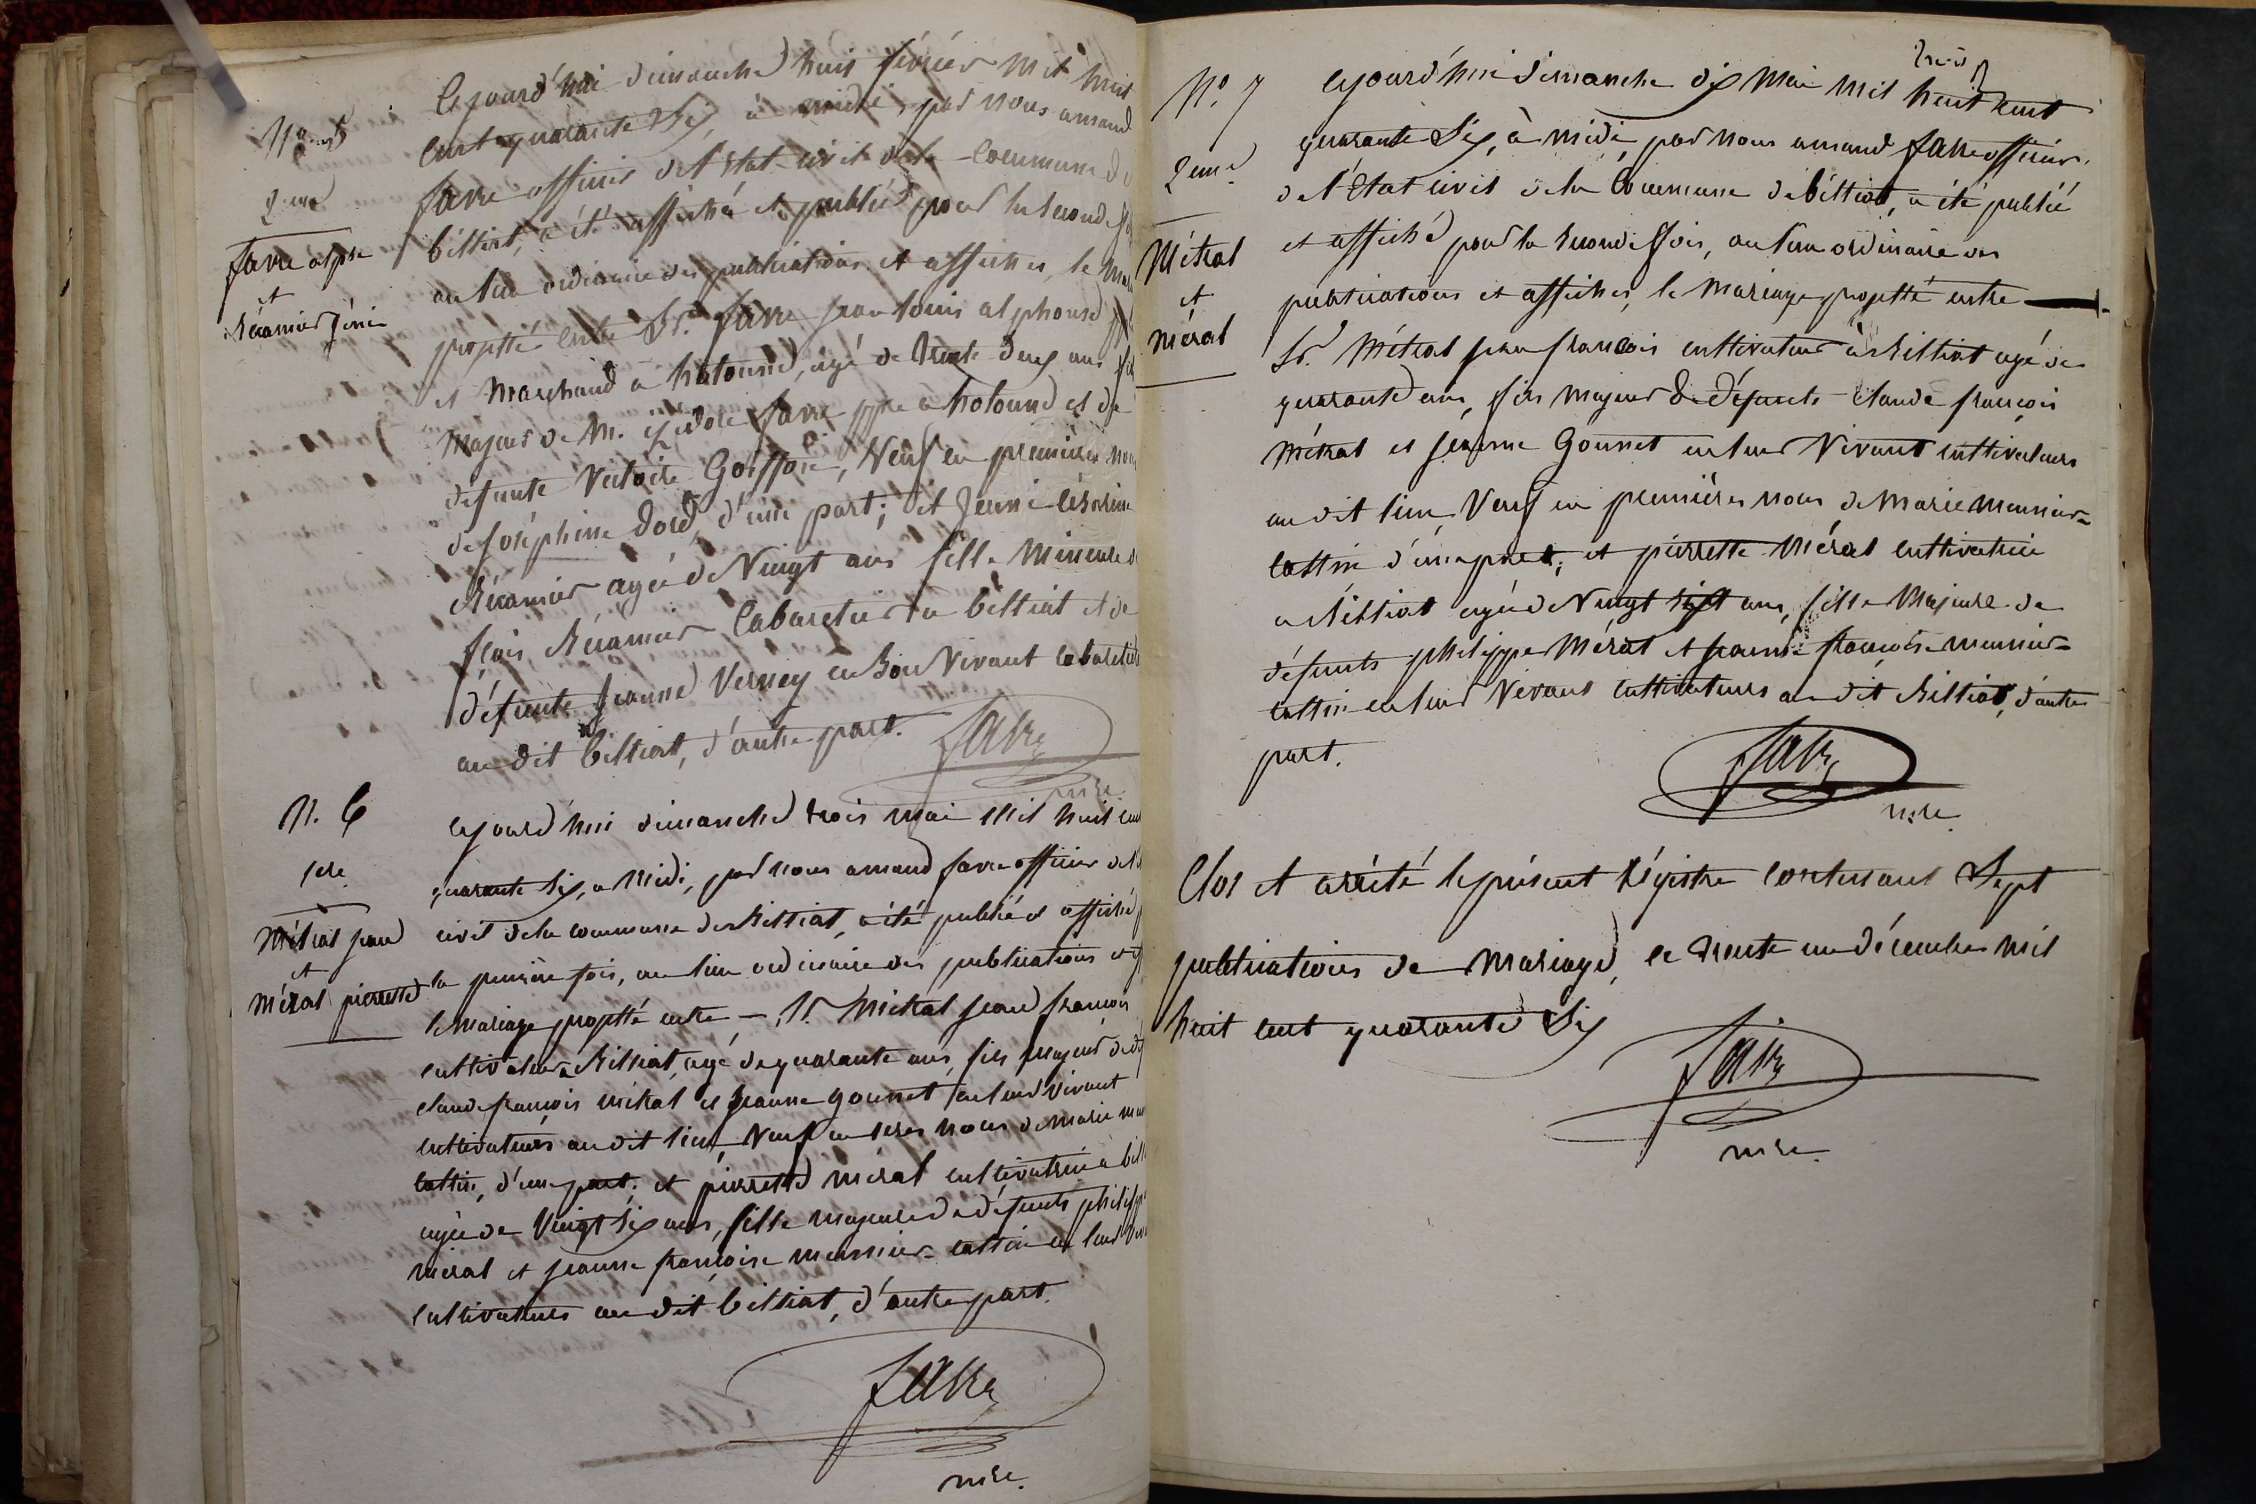 N° 5
2eme
favre alpse
et
Récamier Jénie
Cejourd'hui dimanche huit février mil huit
cent quarante Six, à midi, par nous amand
favre officier de l'état civil de la Commune de
billiat, a été affiché et publié pour la seconde
au lieu ordinaire des publications et affiches, le
projetté entre Sr. favre jean louis alphonse
et Marchand à hotonne, agé de trente deux ans
majeur de M. izidore favre ppre a hotonne et de
defunte Victoire Goiffon, Veuf en premières
de Joséphine Doré, d'une part; et Jenni
Récamier agée de Vingt ans fille Mineure
fçois Récamier Cabaretier a billiat et de
défunte Jeanne Verney en Son Vivant cabaretière
au dit billiat, d'autre part.
favre
mre.
N. 6
1ere
Métral jean
et
Méral pierrette
cejourd'hui dimanche trois mai Mil huit cent
quarante Six, a Midi, par nous amand favre officier de
civil de la commune de Billiat, a été publié et affiché
la première fois, au lieu ordinaire des publications
le Mariage projetté entre — Sr. Métral jean françois
cultivateur a Billiat, agé de quarante ans, fils majeur de
claude françois métral et jeanne gonnet en leur vivant
cultivateurs au dit lieu, Veuf en 1eres noces de marie
cattin, d'une part; et pierrette méral cultivatrice à
agée de Vingt Six ans, fille majeure de défunts
méral et jeanne françoise meunier-cattin en leur
cultivateurs au dit billiat, d'autre part.
favre
mre.
N° 7
2eme
Métral
et
méral
cejourd'hui dimanche dix Mai mil huit cent
quarante Six, à midi, par nous amand favre officier
de l'état civil de la Commune de billiat, a été publié
et affiché pour la seconde fois, au lieu ordinaire des
publications et affiches, le Mariage projetté entre
Sr. Métral jean françois cultivateur à Billiat agé de
quarante ans, fils majeur de défunts Claude françois
Métral et jeanne Gonnet en leur Vivant cultivateurs
au dit lieu, Veuf en premières noces de Marie meunier-
cattin d'une part, et pierrette Méral cultivatrice
a Billiat agée de Vingt sept ans, fille Majeure de
défunts philippe Méral et jeanne françoise meunier-
cattin en leur Vivant cultivateurs au dit Billiat, d'autre
part.
favre
mre.
Clos et arrêté le présent Régistre contenant Sept
publications de Mariage, le trente un décembre mil
huit cent quarante Six
favre
mre.